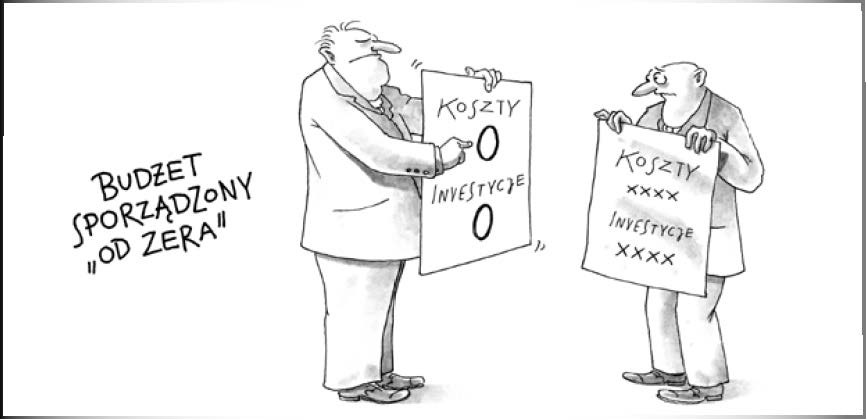 BUDŻET
SPORZĄDZONY
„OD ZERA”
KOSZTY
0
INVESTYCJE
0
KOSZTY
xxxx
INVESTYCJE
xxxx